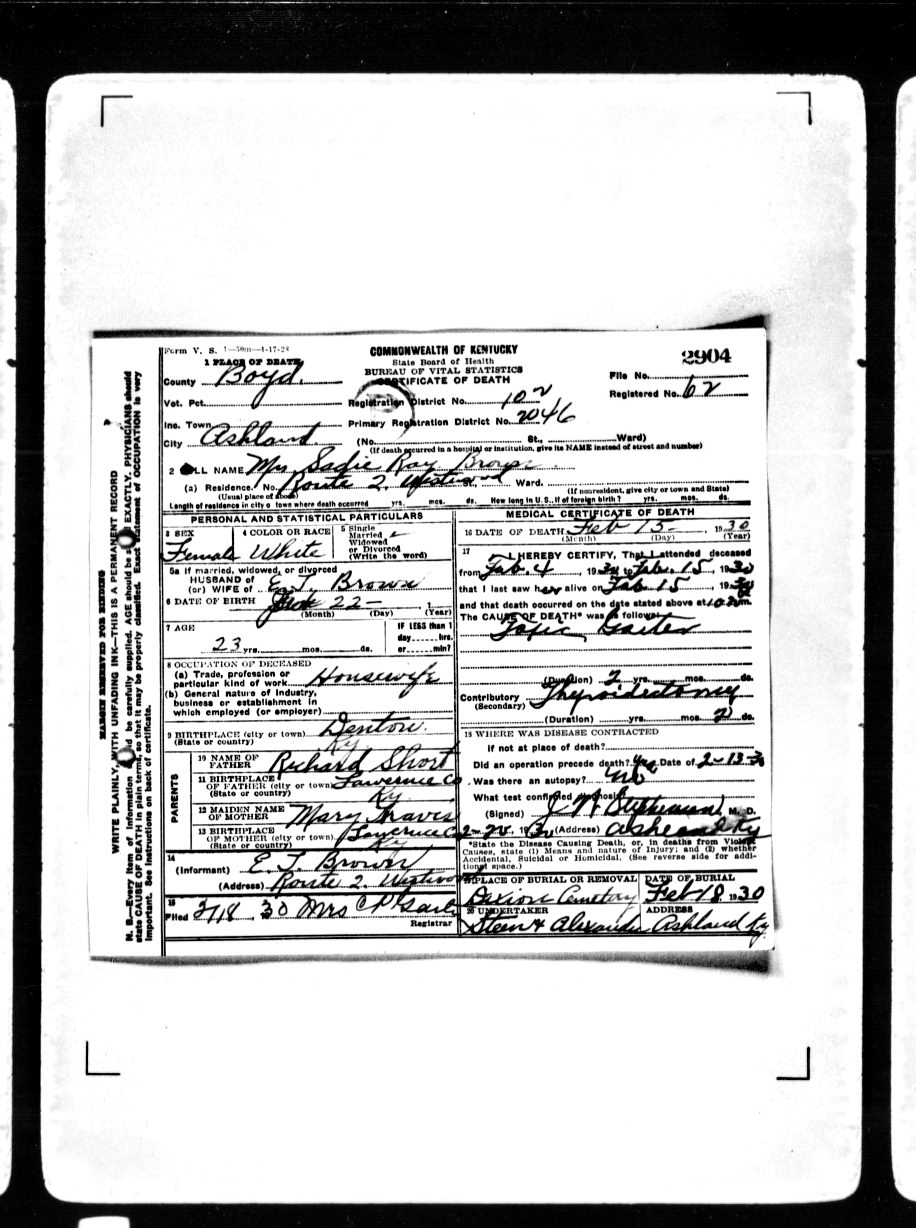 Form V. S. 1—50m—4-17-28
COMMONWEALTH OF KENTUCKY
State Board of Health
BUREAU OF VITAL STATISTICS
CERTIFICATE OF DEATH
2904
File No.
Registered No. 62
1 PLACE OF DEATH
County Boyd.
Vot. Pct.
Registration District No. 102
Inc. Town
Primary Registration District No. 2046
City Ashland
(No. St., Ward)
(If death occurred in a hospital or institution, give its NAME instead of street and number)
2 FULL NAME Mrs Sadie Ray Brown
(a) Residence. No. Route 2. Westwood Ward.
(Usual place of abode) (If nonresident, give city or town and State)
Length of residence in city or town where death occurred yrs. mos. ds. How long in U. S., if of foreign birth? yrs. mos. ds.
PERSONAL AND STATISTICAL PARTICULARS
3 SEX
Female
4 COLOR OR RACE
White
5 Single
Married
Widowed
or Divorced
(Write the word)
5a If married, widowed, or divorced
HUSBAND of
(or) WIFE of E. T. Brown
6 DATE OF BIRTH 22 — 1
(Month) (Day) (Year)
7 AGE
23 yrs. mos. ds.
IF LESS than 1
day hrs.
or min?
8 OCCUPATION OF DECEASED
(a) Trade, profession or
particular kind of work Housewife
(b) General nature of industry,
business or establishment in
which employed (or employer)
9 BIRTHPLACE (city or town) Denton.
(State or country) Ky
PARENTS
10 NAME OF
FATHER Richard Short
11 BIRTHPLACE
OF FATHER (city or town) Lawrence Co
(State or country) Ky
12 MAIDEN NAME
OF MOTHER Mary
13 BIRTHPLACE
OF MOTHER (city or town) Lawrence Co
(State or country) Ky
14
(Informant) E. T. Brown
(Address) Route 2. Westwood
15
Filed 2/18, 30 Mrs C P
Registrar
MEDICAL CERTIFICATE OF DEATH
16 DATE OF DEATH Feb 15 — 1930
(Month) (Day) (Year)
17
I HEREBY CERTIFY, That I attended deceased
from Feb. 4 1930 to Feb. 15, 1930
that I last saw her alive on Feb 15, 1930
and that death occurred on the date stated above at m.
The CAUSE OF DEATH* was as follows:
Toxic Goiter
(Duration) 2 yrs. mos. ds.
Contributory Thyroidectomy
(Secondary)
(Duration) yrs. mos. 2 ds.
18 WHERE WAS DISEASE CONTRACTED
if not at place of death?
Did an operation precede death? Yes Date of 2-13-30
Was there an autopsy? No
What test confirmed diagnosis?
(Signed) J. W. Stephenson, M. D.
, 1930 (Address) Ashland Ky
*State the Disease Causing Death, or, in deaths from Violent
Causes, state (1) Means and nature of Injury; and (2) whether
Accidental, Suicidal or Homicidal. (See reverse side for addi-
tional space.)
19 PLACE OF BURIAL OR REMOVAL
Dixion Cemetery
DATE OF BURIAL
Feb 18, 1930
20 UNDERTAKER
Steen & Alexander
ADDRESS
Ashland Ky.
MARGIN RESERVED FOR BINDING
WRITE PLAINLY, WITH UNFADING INK—THIS IS A PERMANENT RECORD
N. B.—Every item of information should be carefully supplied. AGE should be stated EXACTLY. PHYSICIANS should
state CAUSE OF DEATH in plain terms, so that it may be properly classified. Exact statement of OCCUPATION is very
important. See instructions on back of certificate.